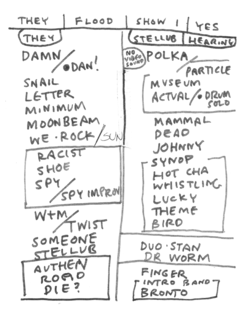 THEY FLOOD SHOW 1 YES
THEY
DAMN/
DAN!
SNAIL
LETTER
MINIMUM
MOONBEAM
WE·ROCK/SUN
RACIST
SHOE
SPY/
SPY IMPROV
W+M/
TWIST
SOMEONE
STELLUB
AUTHEN
ROAD
DIE?
STELLUB HEARING
NO VIDEO
POLKA/
PARTICLE
MUSEUM
ACTUAL/DRUM
SOLO
MAMMAL
DEAD
JOHNNY
SYNOP
HOT CHA
WHISTLING
LUCKY
THEME
BIRD
DUO·STAN
DR WORM
FINGER
INTRO BAND
BRONTO